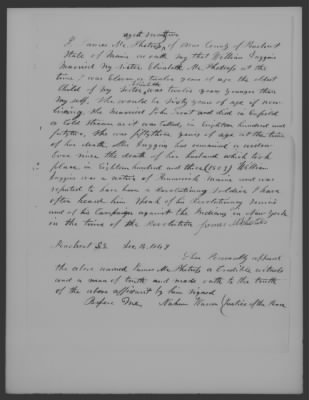 aged seventy two
I James Mc Phetres of Orono County of Penobscot
State of Maine on oath say that William Duggins
married my sister Elizabeth Mc Phetres at the
time I was Eleven or twelve years of age the oldest
Child of my sister was twelve years younger than
my self, She would be Sixty years of age if now
living. She married John Treat and died in Enfield
a cold stream as it was called, in Eighteen hundred and
fifty two, She was fifty three years of age at the time
of her death. Mrs Duggins has remained a widow
Ever since the death of her husband which took
place in Eighteen hundred and three (1803) William
Duggins was a native of Maine and was
reputed to have been a Revolutionary Soldier I have
often heard him Speak of his Revolutionary Service
and of his Campaign against the Indians in New York
in the time of the Revolution James McPhetres
Penobscot SS. Dec 1848
Then Personally appeared
the above named James Mc Phetres a Credible witness
and a man of truth and made oath to the truth
of the above affidavit by him signed
Before Me Justice of the Peace